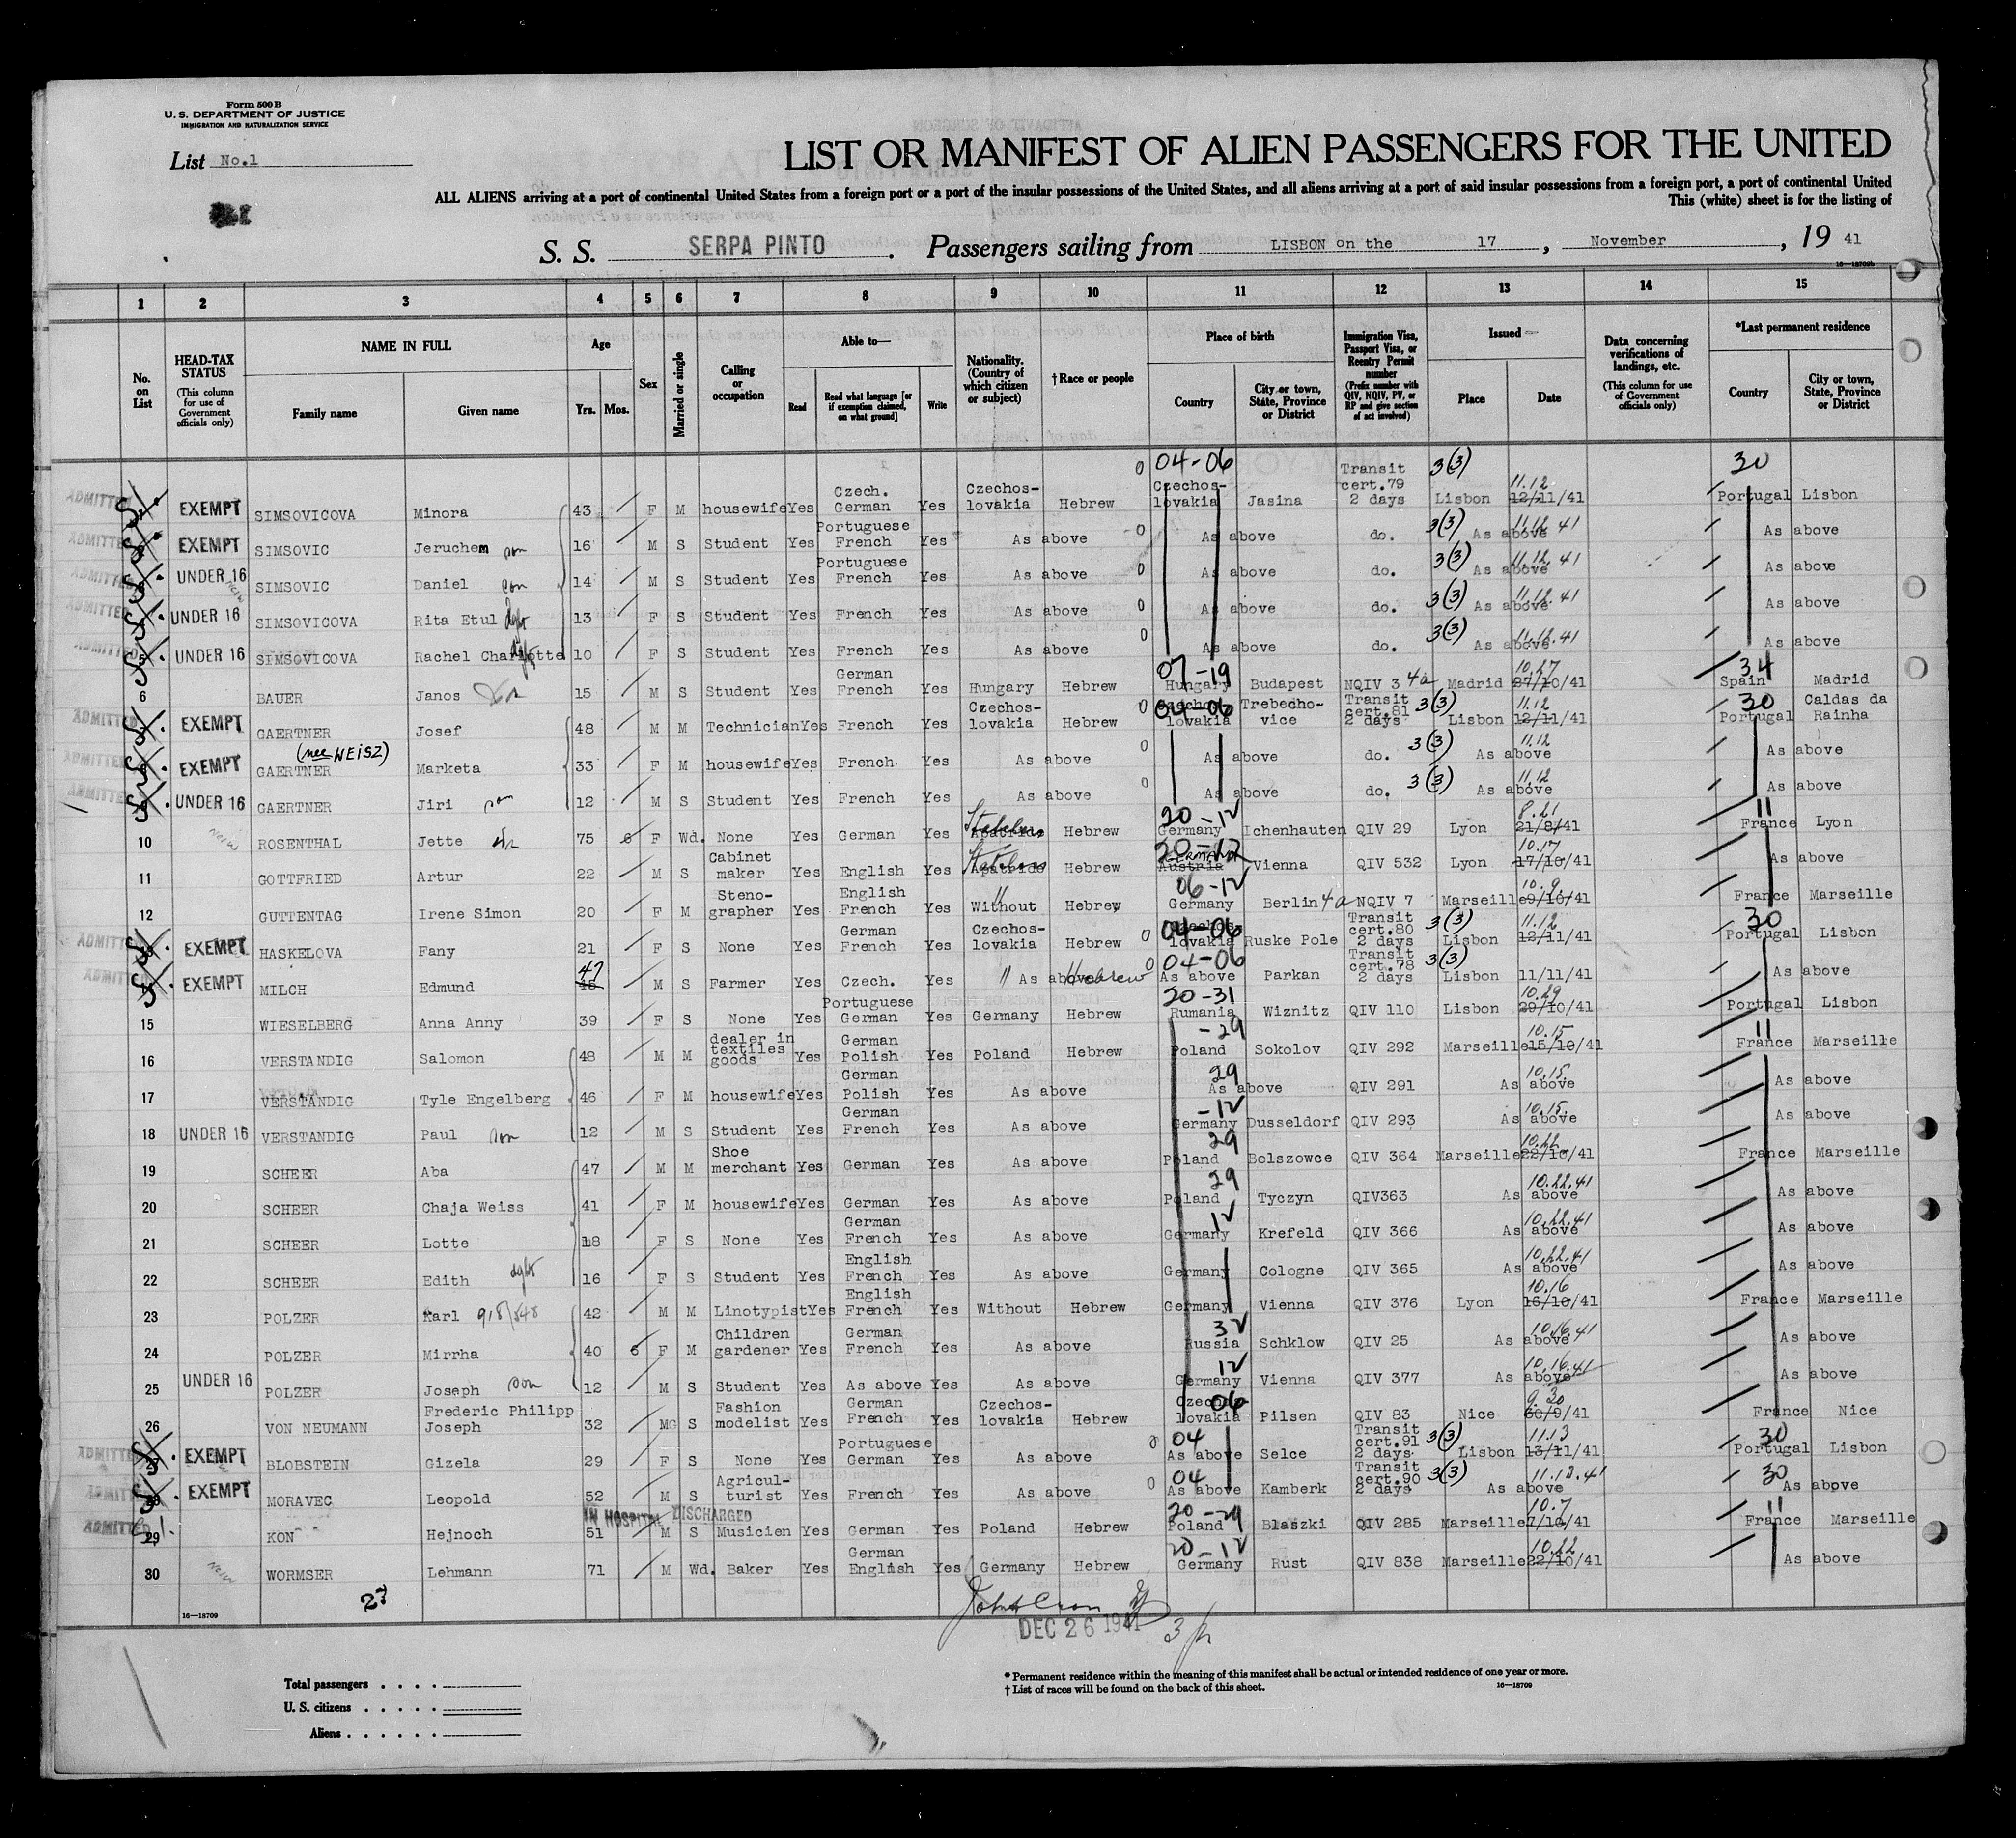 Form 500 B
U. S. DEPARTMENT OF JUSTICE
IMMIGRATION AND NATURALIZATION SERVICE
List No.1
LIST OR MANIFEST OF ALIEN PASSENGERS FOR THE UNITED
ALL ALIENS arriving at a port of continental United States from a foreign port or a port of the insular possessions of the United States, and all aliens arriving at a port of said insular possessions from a foreign port, a port of continental United
This (white) sheet is for the listing of
S. S. SERPA PINTO. Passengers sailing from LISBON on the 17, November, 19 41
16—18709b
1 2 3 4 5 6 7 8 9 10 11 12 13 14 15
No. on List
HEAD-TAX STATUS (This column for use of Government officials only)
NAME IN FULL Family name Given name
Age Yrs. Mos.
Sex
Married or single
Calling or occupation
Able to— Read Read what language [or if exemption claimed, on what ground] Write
Nationality. (Country of which citizen or subject)
† Race or people
Place of birth Country City or town, State, Province or District
Immigration Visa, Passport Visa, or Reentry Permit number (Prefix number with QIV, NQIV, PV, or RP and give section of act involved)
Issued— Place Date
Data concerning verifications of landings, etc. (This column for use of Government officials only)
*Last permanent residence Country City or town, State, Province or District
ADMITTED EXEMPT SIMSOVICOVA Minora 43 F M housewife Yes Czech. German Yes Czechos-lovakia Hebrew 0 04-06 Czechos-lovakia Jasina Transit cert.79 2 days 3(3) Lisbon 11.12 12/11/41 30 Portugal Lisbon
ADMITTED EXEMPT SIMSOVIC Jeruchem son 16 M S Student Yes Portuguese French Yes As above 0 As above do. 3(3) As above 11.12 41 As above
ADMITTED UNDER 16 SIMSOVIC Daniel son 14 M S Student Yes Portuguese French Yes As above 0 As above do. 3(3) As above 11.12 41 As above
ADMITTED UNDER 16 SIMSOVICOVA Rita Etul dgt 13 F S Student Yes French Yes As above 0 As above do. 3(3) As above 11.12.41 As above
ADMITTED 5 UNDER 16 SIMSOVICOVA Rachel Charlotte dgt 10 F S Student Yes French Yes As above 0 As above do. 3(3) As above 11.12.41 As above
6 BAUER Janos 15 M S Student Yes German French Yes Hungary Hebrew 07-19 Hungary Budapest NQIV 3 4a Madrid 10.27 27/10/41 34 Spain Madrid
ADMITTED EXEMPT GAERTNER Josef 48 M M Technician Yes French Yes Czechos-lovakia Hebrew 0 04-06 Czechos-lovakia Trebecho-vice Transit cert.81 2 days 3(3) Lisbon 11.12 12/11/41 30 Portugal Caldas da Rainha
ADMITTED EXEMPT GAERTNER (nee WEISZ) Marketa 33 F M housewife Yes French Yes As above 0 As above do. 3(3) As above 11.12 As above
ADMITTED UNDER 16 GAERTNER Jiri son 12 M S Student Yes French Yes As above 0 As above do. 3(3) As above 11.12 As above
10 ROSENTHAL Jette 75 6 F Wd. None Yes German Yes Apatride Stateless Hebrew 20-12 Germany Ichenhauten QIV 29 Lyon 8.21 21/8/41 11 France Lyon
11 GOTTFRIED Artur 22 M S Cabinet maker Yes English Yes Apatride Stateless Hebrew 20-12 Austria GERMANY Vienna QIV 532 Lyon 10.17 17/10/41 As above
12 GUTTENTAG Irene Simon 20 F M Steno-grapher Yes English French Yes Without " Hebrew 06-12 Germany Berlin 4a NQIV 7 Marseille 10.9. 09/10/41 France Marseille
ADMITTED EXEMPT HASKELOVA Fany 21 F S None Yes German French Yes Czechos-lovakia Hebrew 0 04-06 Czechos-lovakia Ruske Pole Transit cert.80 2 days 3(3) Lisbon 11.12 12/11/41 30 Portugal Lisbon
ADMITTED EXEMPT MILCH Edmund 47 M S Farmer Yes Czech. Yes " As above Hebrew 0 04-06 As above Parkan Transit cert.78 2 days 3(3) Lisbon 11/11/41 As above
15 WIESELBERG Anna Anny 39 F S None Yes Portuguese German Yes Germany Hebrew 20-31 Rumania Wiznitz QIV 110 Lisbon 10.29 29/10/41 Portugal Lisbon
16 VERSTANDIG Salomon 48 M M dealer in textiles goods Yes German Polish Yes Poland Hebrew -29 Poland Sokolov QIV 292 Marseille 10.15 15/10/41 11 France Marseille
17 VERSTANDIG Tyle Engelberg 46 F M housewife Yes German Polish Yes As above 29 As above QIV 291 As above 10.15. As above
18 UNDER 16 VERSTANDIG Paul son 12 M S Student Yes German French Yes As above -12 Germany Dusseldorf QIV 293 As above 10.15. As above
19 SCHEER Aba 47 M M Shoe merchant Yes German Yes As above 29 Poland Bolszowce QIV 364 Marseille 10.22 22/10/41 France Marseille
20 SCHEER Chaja Weiss 41 F M housewife Yes German Yes As above 29 Poland Tyczyn QIV363 As above 10.22.41 As above
21 SCHEER Lotte 18 F S None Yes German French Yes As above 12 Germany Krefeld QIV 366 As above 10.22.41 As above
22 SCHEER Edith dgt 16 F S Student Yes English French Yes As above Germany Cologne QIV 365 As above 10.22.41 As above
23 POLZER Karl 918/548 42 M M Linotypist Yes English French Yes Without Hebrew Germany Vienna QIV 376 Lyon 10.16 16/10/41 France Marseille
24 POLZER Mirrha 40 6 F M Children gardener Yes German French Yes As above 32 Russia Schklow QIV 25 As above 10.16.41 As above
25 UNDER 16 POLZER Joseph son 12 M S Student Yes As above Yes As above 12 Germany Vienna QIV 377 As above 10.16.41 As above
26 VON NEUMANN Frederic Philipp Joseph 32 M S Fashion modelist Yes German French Yes Czechos-lovakia Hebrew 06 Czechos-lovakia Pilsen QIV 83 Nice 9.30 30/9/41 France Nice
ADMITTED 27 EXEMPT BLOBSTEIN Gizela 29 F S None Yes Portuguese German Yes As above 0 04 As above Selce Transit cert.91 2 days 3(3) Lisbon 11.13 13/11/41 30 Portugal Lisbon
ADMITTED 28 EXEMPT MORAVEC Leopold 52 M S Agricul-turist Yes French Yes As above 0 04 As above Kamberk Transit cert.90 2 days 3(3) As above 11.13.41 30 As above
IN HOSPITAL DISCHARGED
ADMITTED 29 KON Hejnoch 51 M S Musicien Yes German Yes Poland Hebrew 20-29 Poland Blaszki QIV 285 Marseille 10.7 7/10/41 11 France Marseille
30 WORMSER Lehmann 71 M Wd. Baker Yes German English Yes Germany Hebrew 20-12 Germany Rust QIV 838 Marseille 10.22 22/10/41 As above
27
16—18709
DEC 26 1941
Total passengers
U. S. citizens
Aliens
* Permanent residence within the meaning of this manifest shall be actual or intended residence of one year or more.
† List of races will be found on the back of this sheet.
16—18709